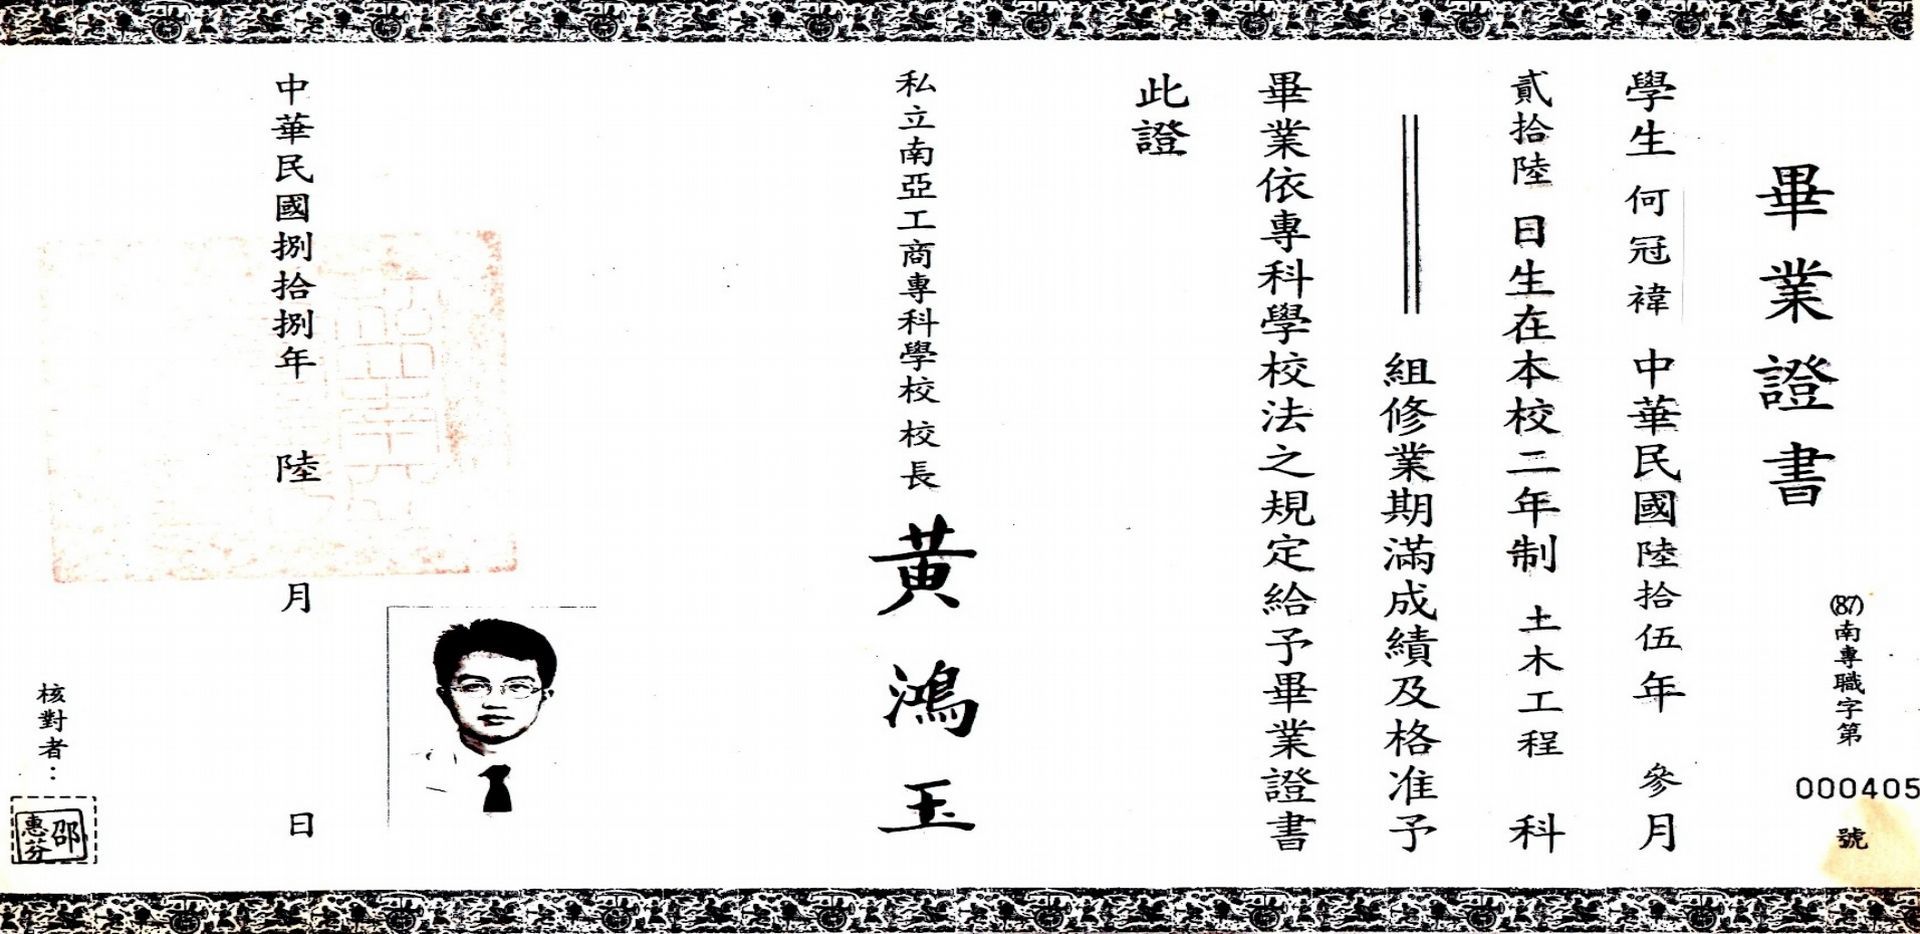 畢業證書
(87)南專職字第
000405
號
學生 何冠褘 中華民國陸拾伍年 參月
貳拾陸 日生在本校二年制 土木工程 科
組修業期滿成績及格准予
畢業依專科學校法之規定給予畢業證書
此證
私立南亞工商專科學校 校長 黃鴻玉
中華民國捌拾捌年 陸 月 日
核對者：
邵惠芬